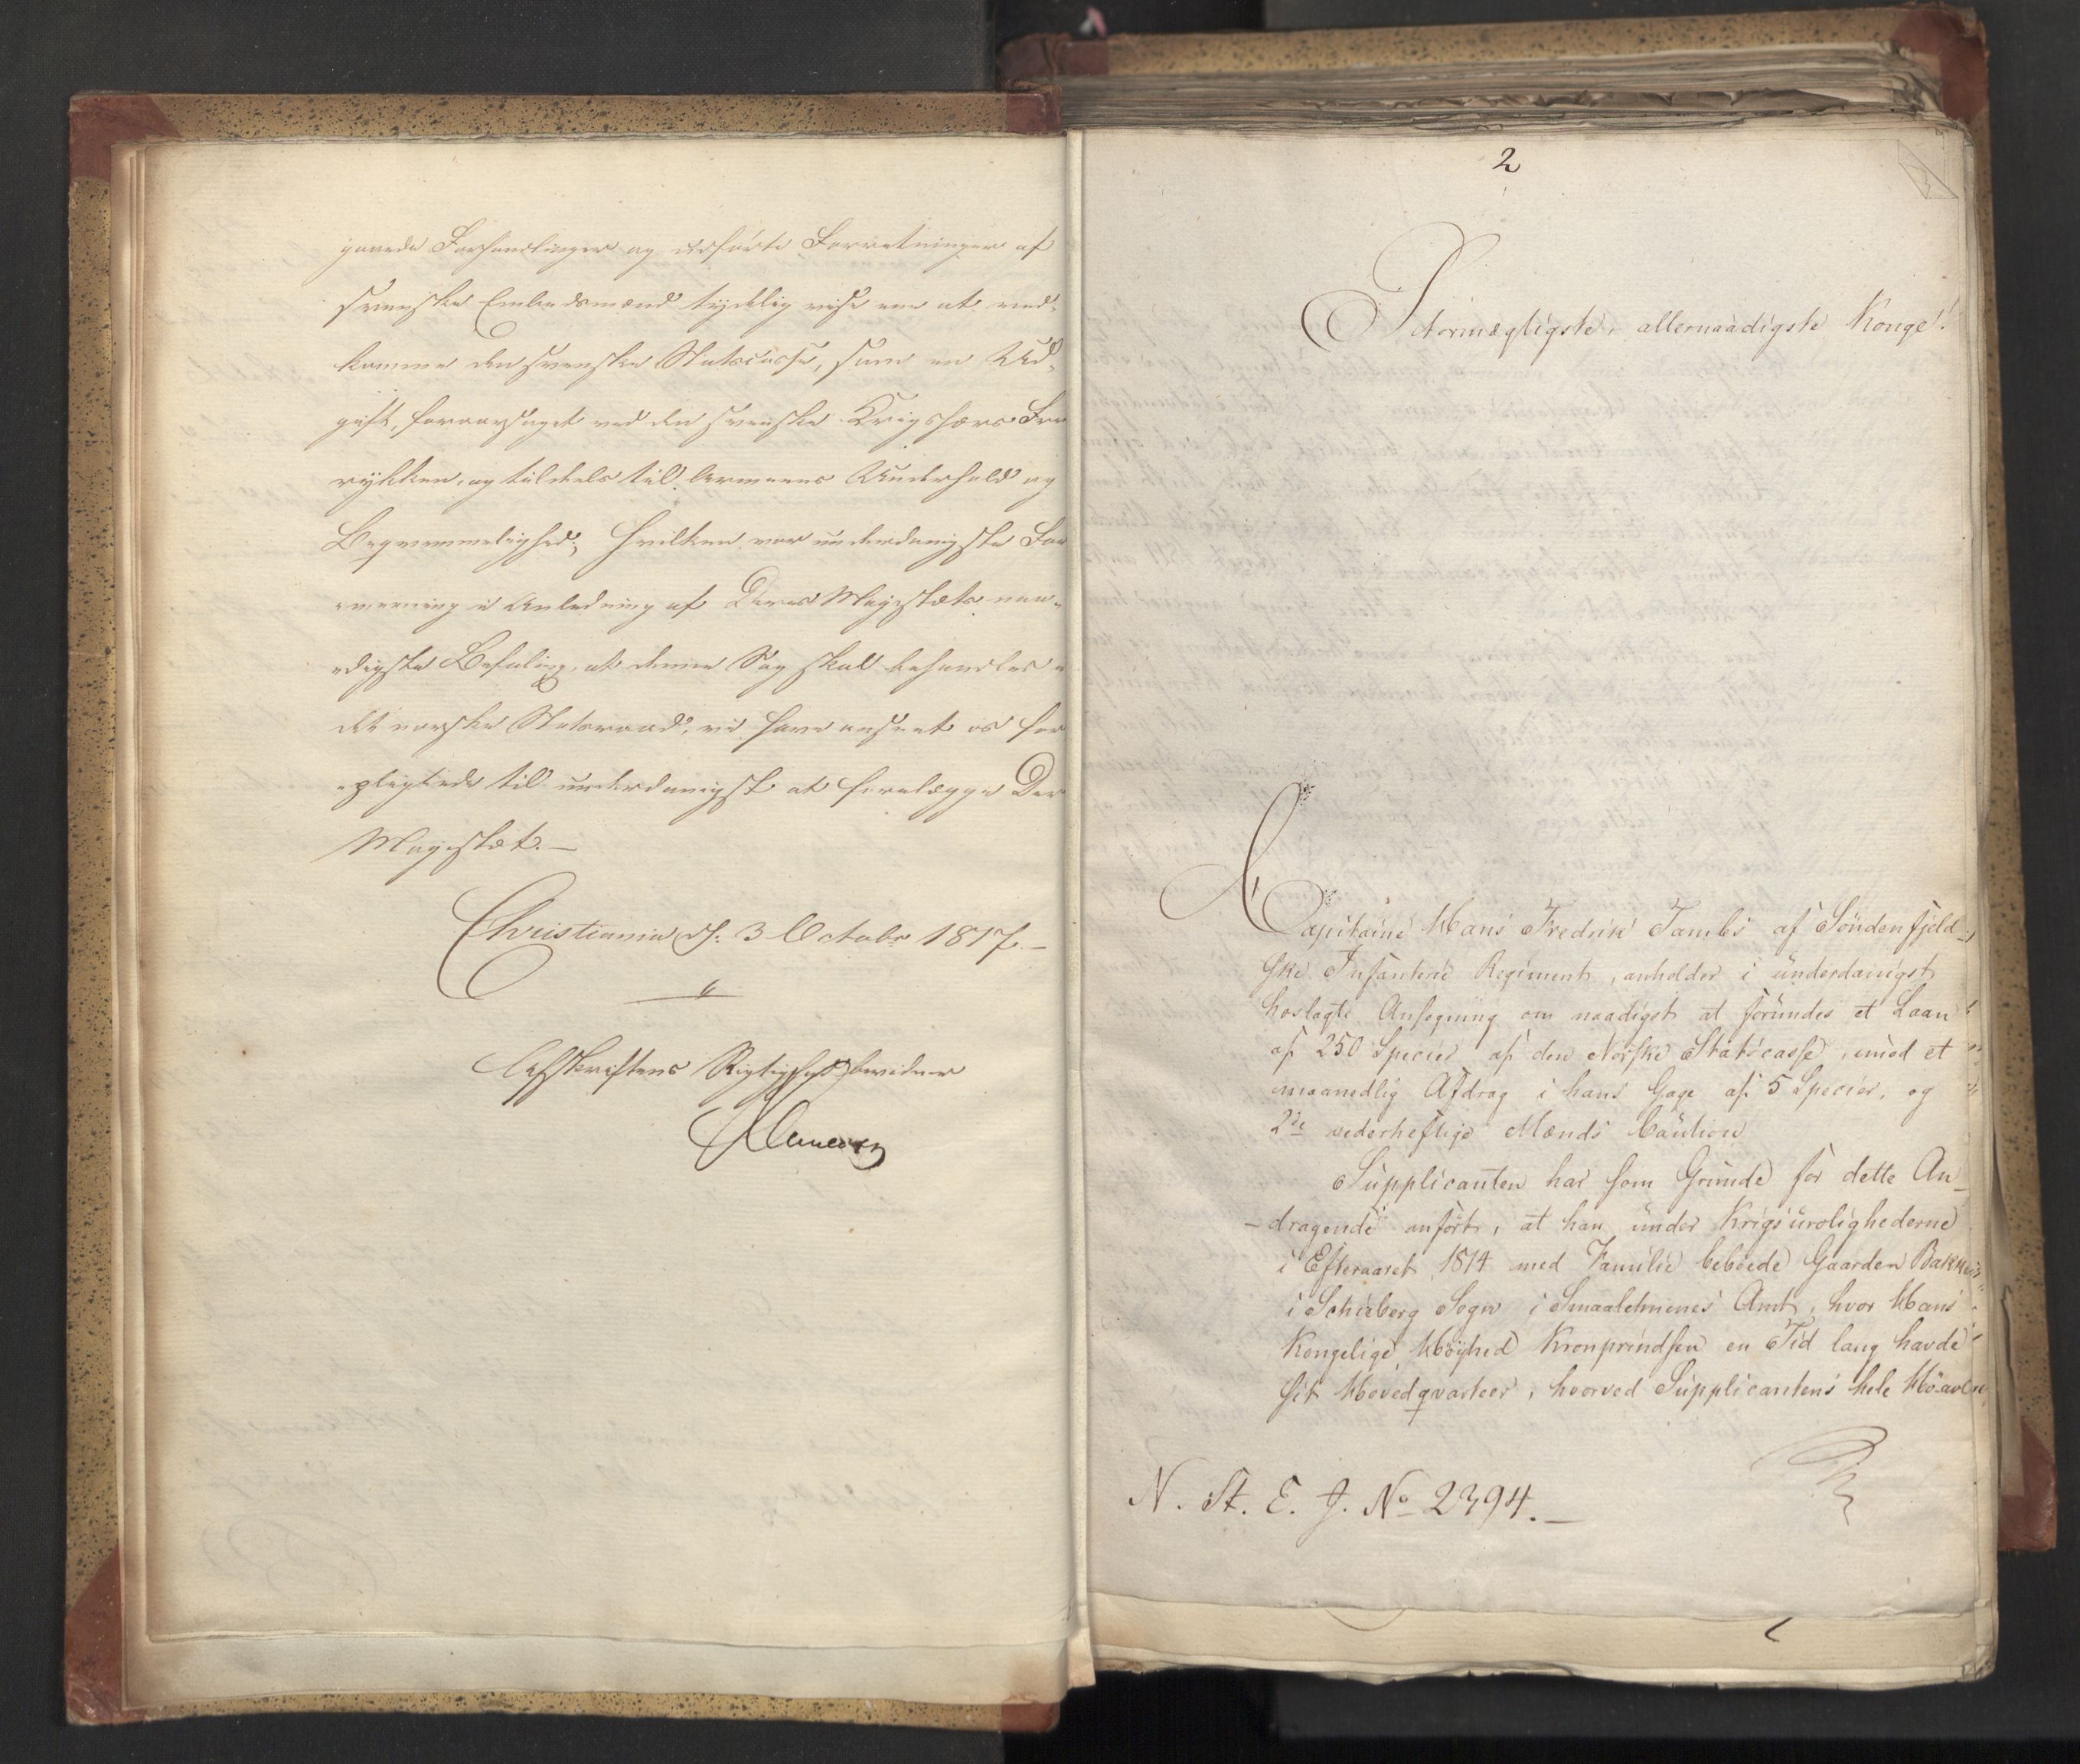 gaaede Forhandlinger og udførte Forretninger af
svenske Embedsmænd tydelig vise sig at ved-
komme den svenske Statscasse, som en Ud-
gift, foraarsaget ved den svenske Krigshærs
rykken, og tildels til Armeens Underhold og
Beqvemmelighed; hvilken vor underdanigste For
mening i Anledning af Deres Majestæts naa-
digste Befaling, at denne Sag skal behandles i
det norske Statsraad, vi have anseet os for
pligtede til underdanigst at forelægge Der
Majestæt. —
Christiania d. 3 Octobr 1817. —
Afskriftens Rigtighed bevidner
2
Stormægtigste, allernaadigste Konge!
Capitaine Hans Fredrik Tambs af Søndenfjeld-
ske Infanterie Regiment, anholder i underdanigst
hoslagte Ansøgning om naadigst at forundes et Laan
af 250 Species af den Norske Statscasse, imod et
maanedlig Afdrag i hans Gage af 5 Species, og
2de vederheftige Mænds Caution
Supplicanten har som Grunde for dette An-
-dragende anført, at han under Krigsurolighederne
i Efteraaret 1814 med Familie beboede Gaarden
i Schieberg Sogn i Smaalehnenes Amt, hvor Hans
Kongelige Høyhed Kronprindsen en Tid lang havde
sit Hovedqvarteer, hvorved Supplicantens hele Høeavl
N. St. E. J. No 2394. —